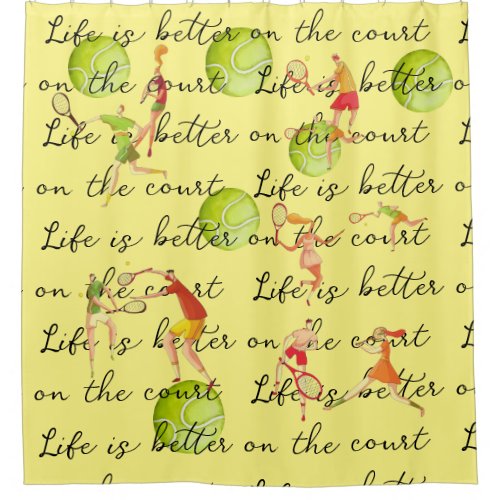 Life is better on the court L
on the court Life is better o
Life is better on the court L
on the court Life is better o
Life is better on the court L
on the court Life is better o
Life is better on the court L
on the court Life is better o
Life is better on the court L